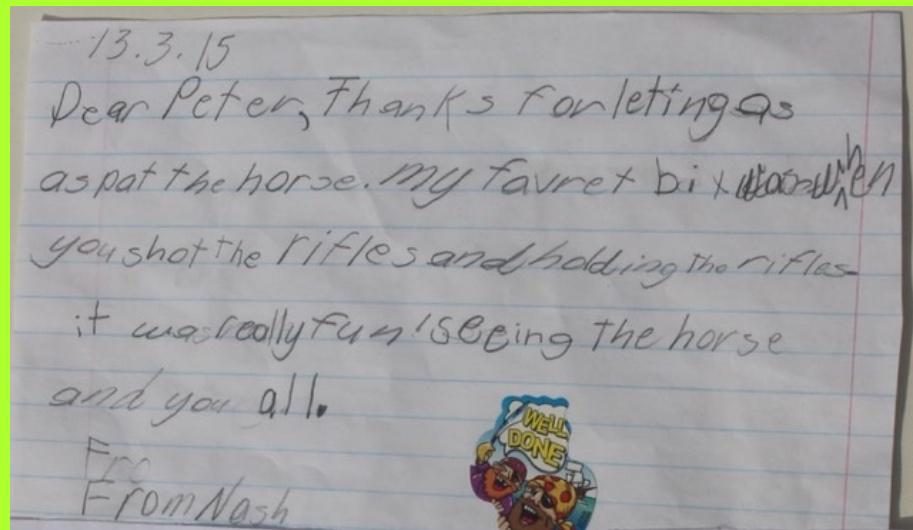 13.3.15
Dear Peter, Thanks for leting as
as pat the horse. my favret bit when
you shot the rifles and holding the rifles
it was really fun! seeing the horse
and you all.
Fro
From Nash
WELL
DONE